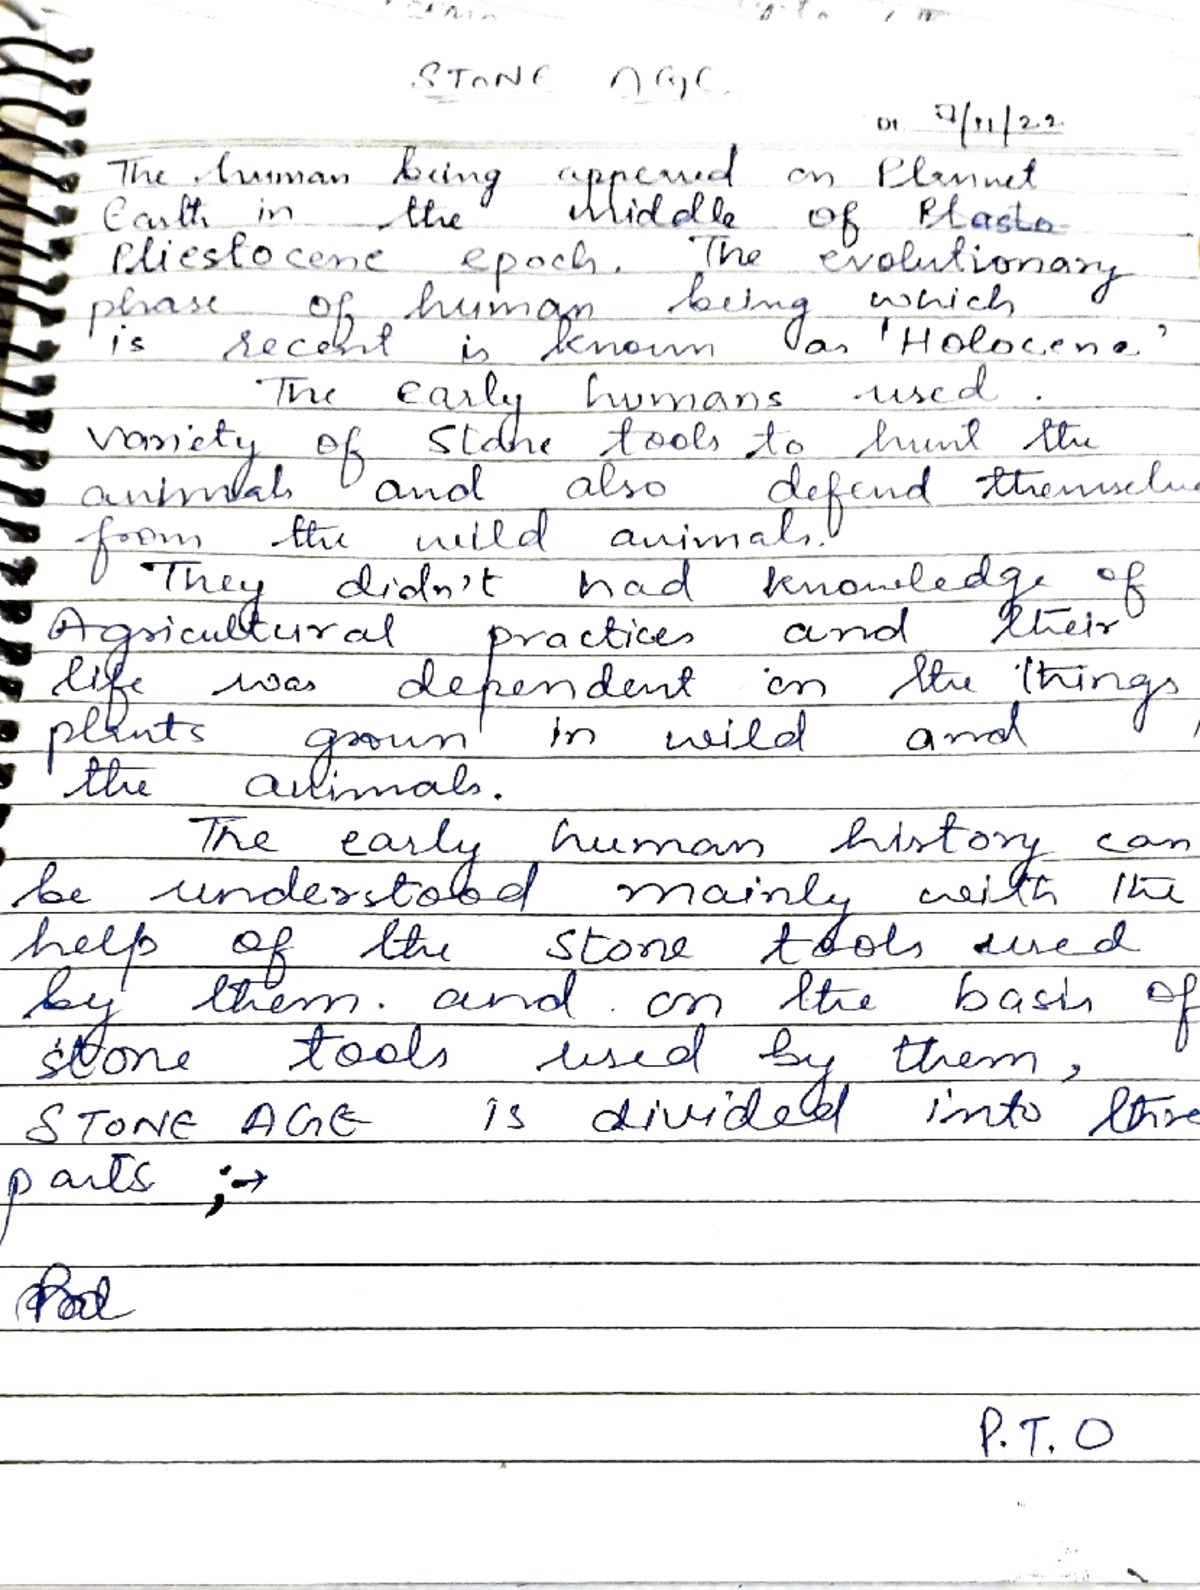 STONE AGE
Dt 7/11/22
The human being appeared on Plannet
Earth in the middle of Plasto
Pliestocene epoch. The evolutionary
phase of human being which
is recent is known as 'Holocene'
The early humans used
variety of Stone tools to hunt the
animals and also defend themselve
from the wild animals.
They didn't had knowledge of
Agricultural practices and their
life was dependent on the things
plants grown in wild and
the animals.
The early human history can
be understood mainly with the
help of the stone tools used
by them. and on the basis of
stone tools used by them,
STONE AGE is divided into thre
parts ;→
P.T.O